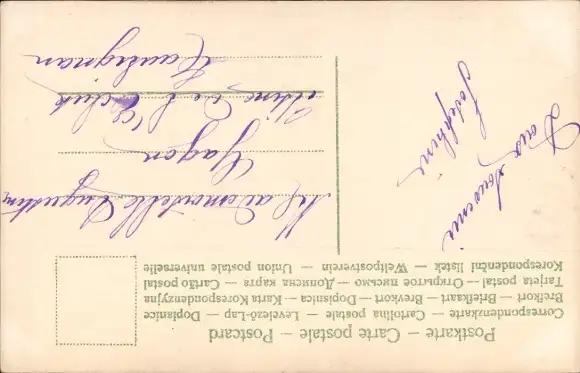 Postkarte — Carte postale — Postcard
Correspondenzkarte — Cartolina postale — Levelező-Lap — Dopisnice
Brefkort — Briefkaart — Brevkort — Dopisnica — Karta Korespondencyjna
Tarjeta postal — Открытое письмо — Дописна карта — Cartão postal
Korespondenční lístek — Weltpostverein — Union postale universelle
Doux souvenir
Joséphine
Mademoiselle Augustine
Gagon
Usine de
Hautignan